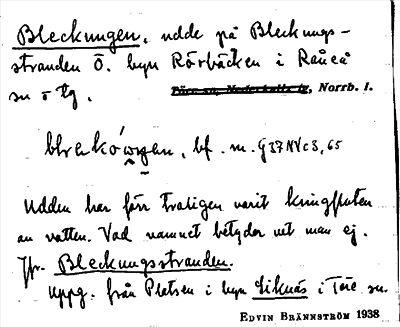 Bleckungen, udde på Bleckungs-
stranden Ö. byn Rörbäcken i Råneå
sn o tg. Töre sn, Nederkalix tg, Norrb. l.
bf. m. G37NVc3,65
Udden har förr troligen varit kringfluten
av vatten. Vad namnet betyder vet man ej.
Jfr. Bleckungsstranden.
Uppg. från Platsen i byn Siknäs i Töre sn.
EDVIN BRÄNNSTRÖM 1938